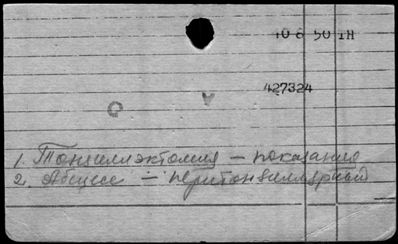 10 8 50 IH
427324
1. Тонзиллэктомия – показания
2. Абсцесс – перитонзиллярный